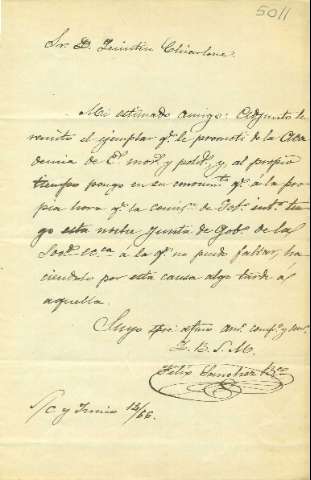 5011
Sr. D. Quintin Chiarlone.
Mi estimado amigo: Adjunto le
remito el ejemplar q.e le prometi de la Aca
demia de C.s mor.s y polit.s y, al propio
tiempo pongo en su conocim.to q.e á la pro
pia hora q.e la comis.n de
go esta noche Junta de Gob.o de la
Soc.d á la q.e no puedo faltar, ha
ciendolo por esta causa algo tarde á
aquella.
Suyo afmo am.o comp.o y
Q. B. S. M.
Felix
S/C y Junio 13/66.